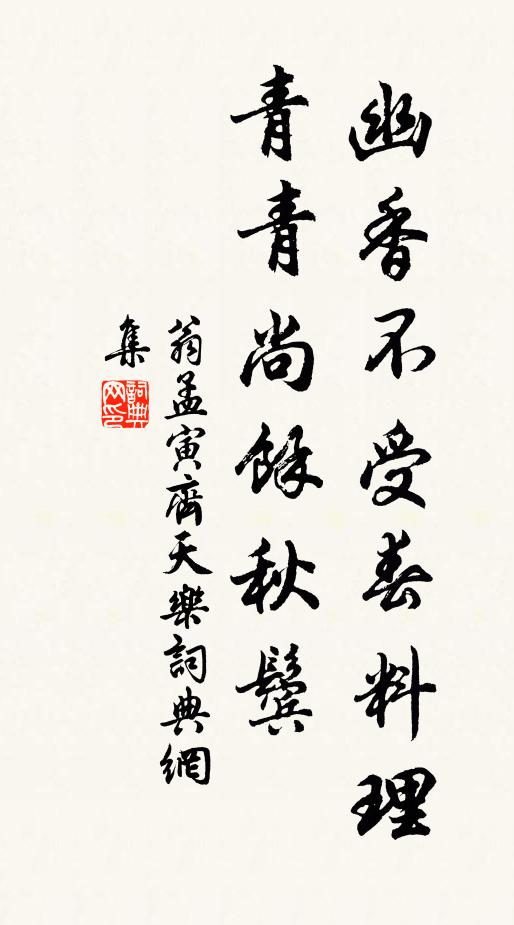 幽香不受春料理
青青尚餘秋鬢
翁孟寅齊天樂詞典網
集
詞典
网印